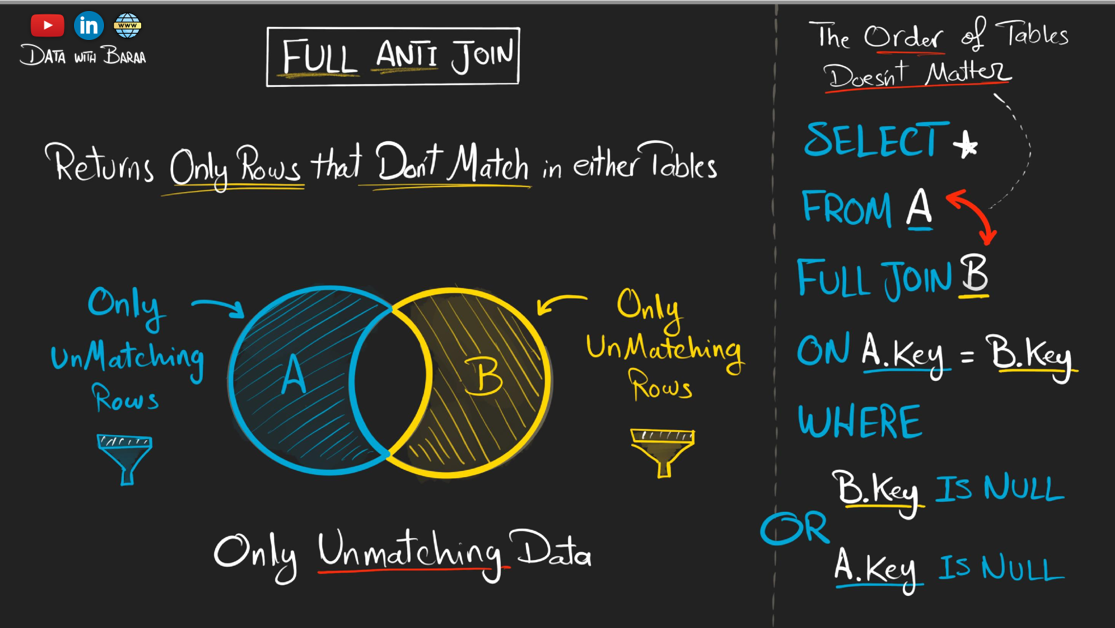 WWW
in
DATA WITH BARAA
FULL ANTI JOIN
Returns Only Rows that Don't Match in either Tables
Only
UnMatching
Rows
A
B
Only
UnMatching
Rows
Only Unmatching Data
The Order of Tables
Doesn't Matter
SELECT *
FROM A
FULL JOIN B
ON A.Key = B.Key
WHERE
B.Key IS NULL
OR
A.Key IS NULL